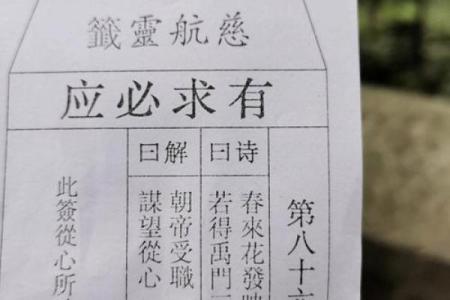 慈航靈籤
有求必应
第八十六
诗曰
春來花發映
若得禹門
解曰
朝帝受職
謀望從心
此簽從心所